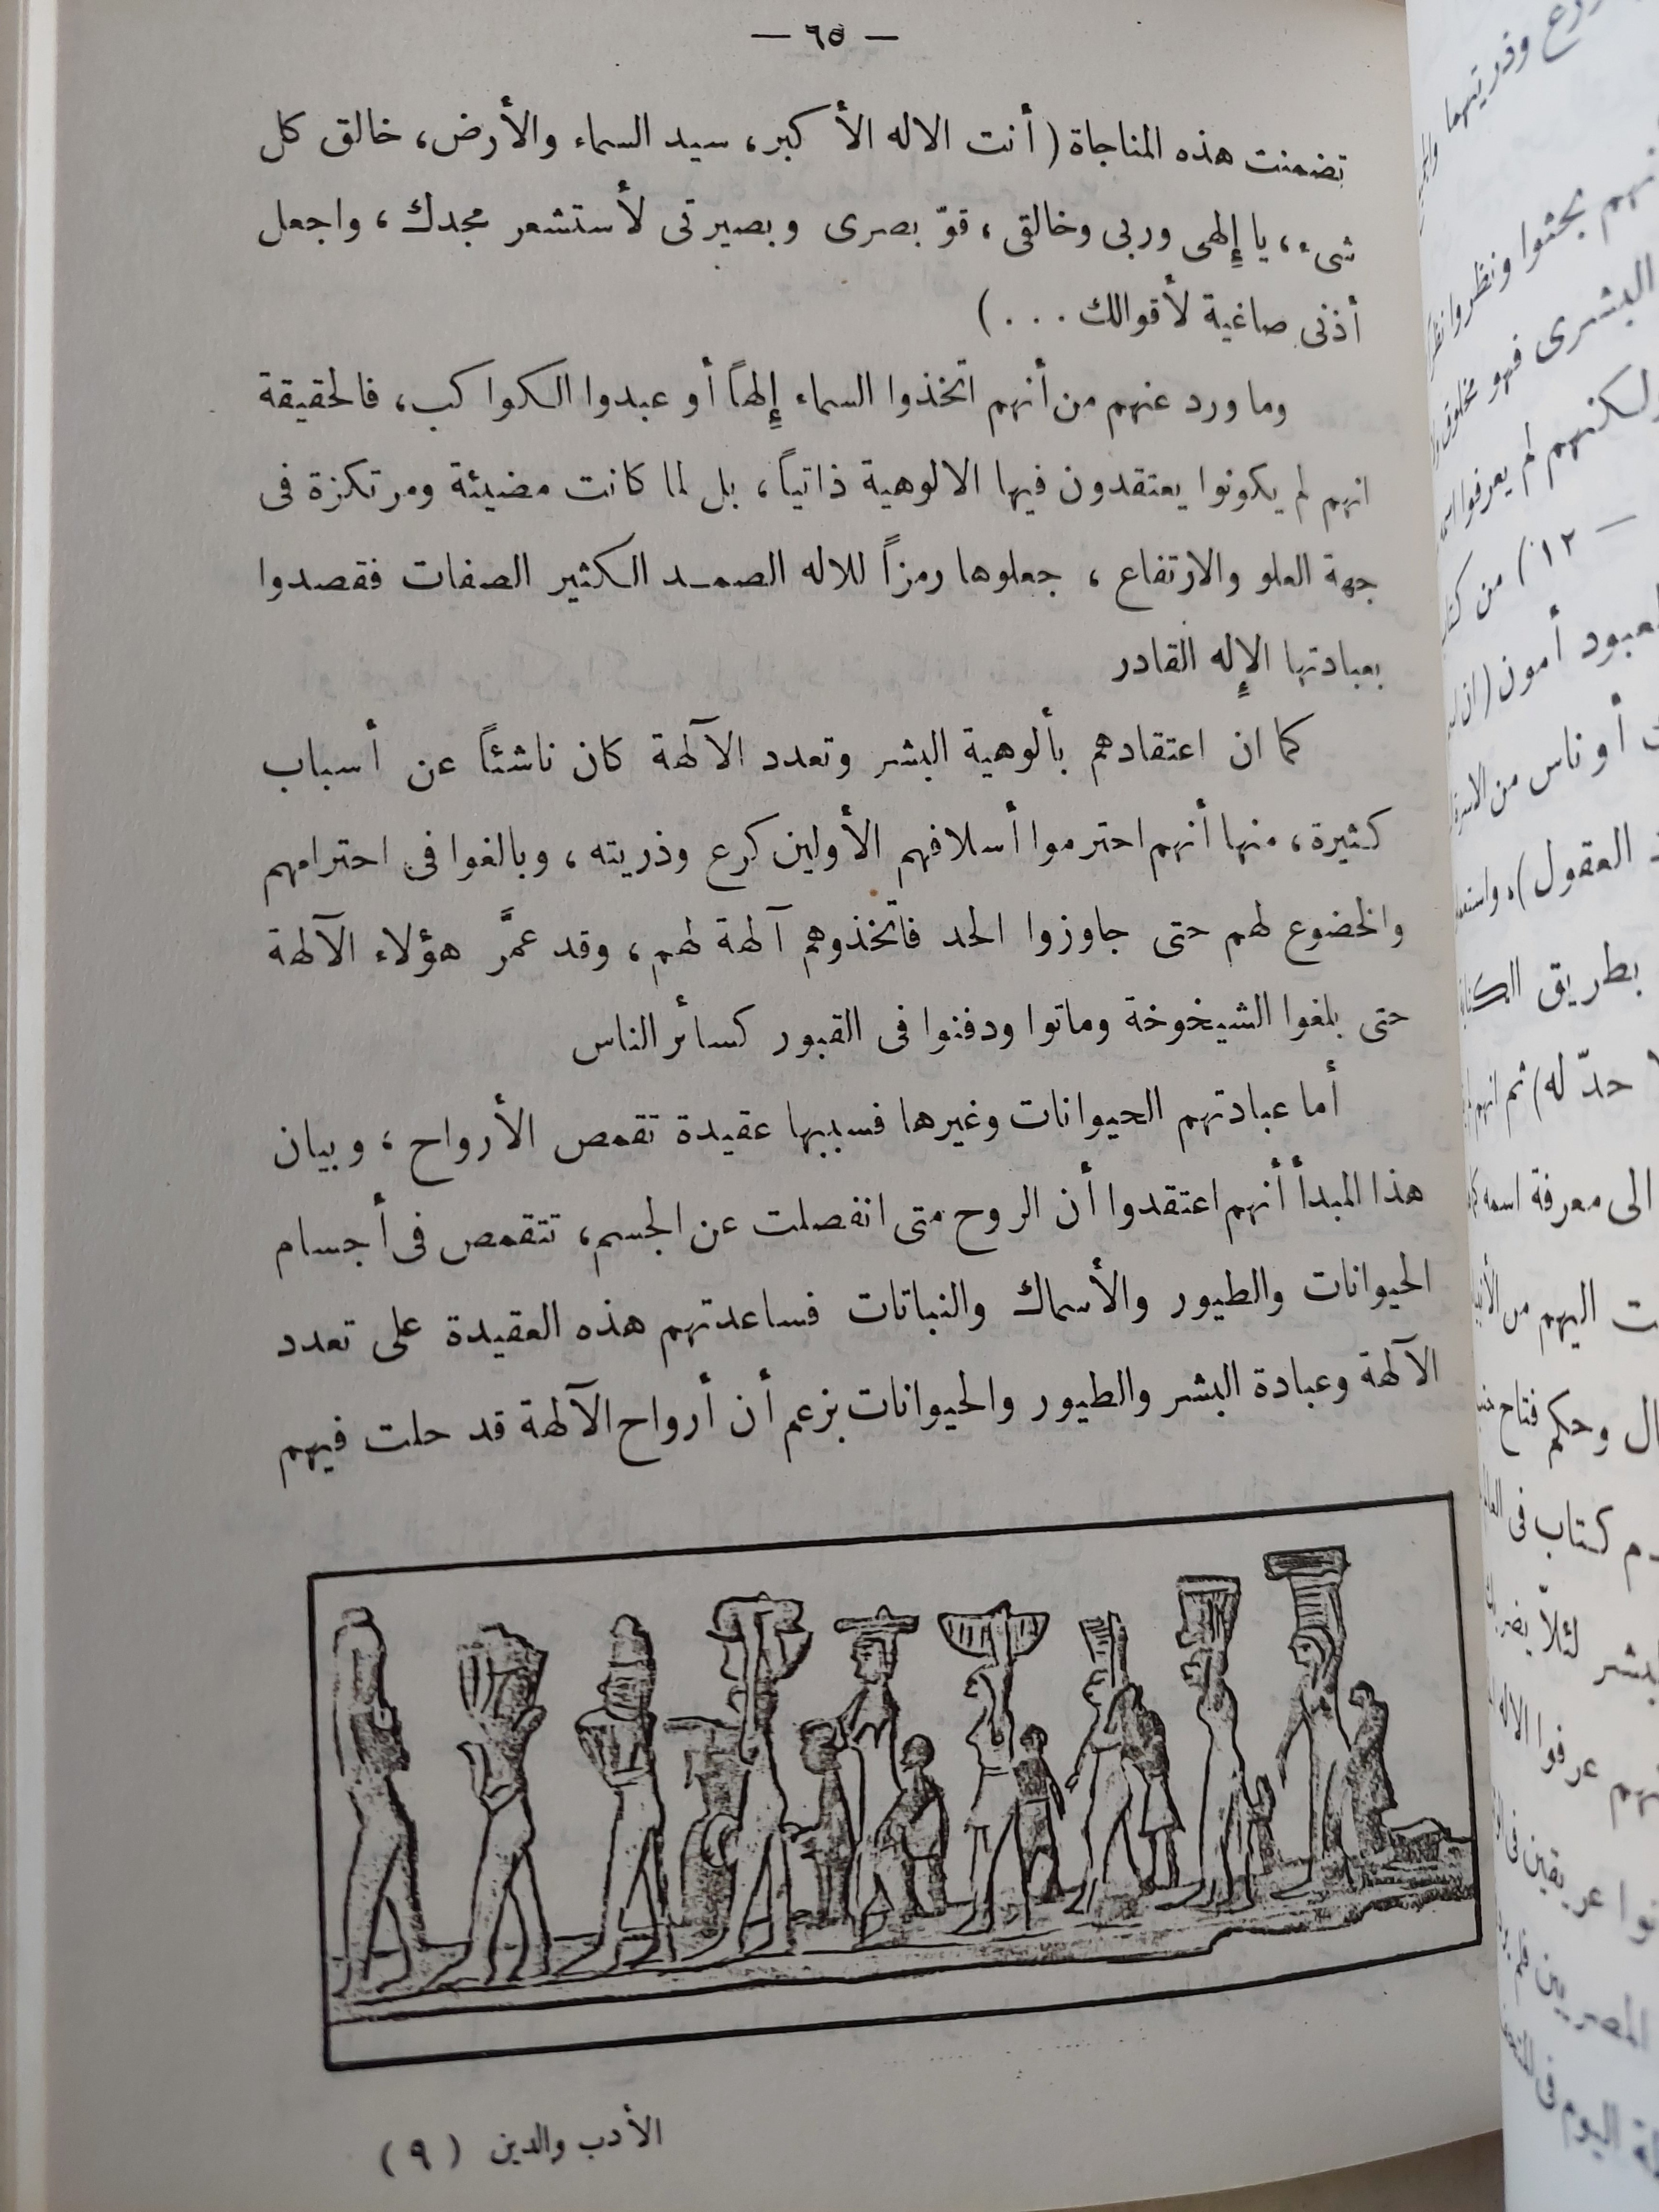 — ٦٥ —
تضمنت هذه المناجاة ( أنت الاله الأكبر، سيد السماء والأرض، خالق كل
شىء، يا إلهى وربى وخالقى، قوّ بصرى وبصيرتى لأستشعر مجدك، واجعل
أذنى صاغية لأقوالك . . . )
وما ورد عنهم من أنهم اتخذوا السماء إلهاً أو عبدوا الكواكب، فالحقيقة
انهم لم يكونوا يعتقدون فيها الالوهية ذاتياً، بل لما كانت مضيئة ومرتكزة فى
جهة العلو والارتفاع، جعلوها رمزاً للاله الصمد الكثير الصفات فقصدوا
بعبادتها الإله القادر
كما ان اعتقادهم بألوهية البشر وتعدد الآلهة كان ناشئاً عن أسباب
كثيرة، منها أنهم احترموا أسلافهم الأولين كرع وذريته، وبالغوا فى احترامهم
والخضوع لهم حتى جاوزوا الحد فاتخذوهم آلهة لهم، وقد عمَّر هؤلاء الآلهة
حتى بلغوا الشيخوخة وماتوا ودفنوا فى القبور كسائر الناس
أما عبادتهم الحيوانات وغيرها فسببها عقيدة تقمص الأرواح، وبيان
هذا المبدأ أنهم اعتقدوا أن الروح متى انفصلت عن الجسم، تتقمص فى أجسام
الحيوانات والطيور والأسماك والنباتات فساعدتهم هذه العقيدة على تعدد
الآلهة وعبادة البشر والطيور والحيوانات بزعم أن أرواح الآلهة قد حلت فيهم
الأدب والدين ( ٩ )
وذريتهما
بحثوا ونظروا
البشرى فهو مخلوق
لم يعرفوا
— ١٢ ) من
أمون ( ان
أوناس من
العقول )، 
بطريق
حدّ له ) ثم انهم
الى معرفة اسمه
اليهم من
وحكم فتاح
كتاب فى
لئلاّ
عرفوا الاله
عريقين فى
المصريين
اليوم فى